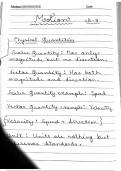 Date
Motion ch-8
Physical Quantities
Scalar Quantity : Has only
magnitude but no direction.
Vector Quantity : Has both
magnitude and direction.
Scalar Quantity example : Speed
Vector Quantity example : Velocity
[Velocity : Speed + direction]
Unit : Units are nothing but
standards.